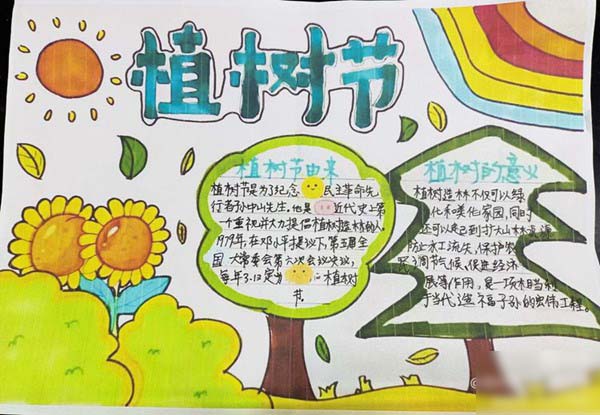 植树节
植树节由来
植树节是为了纪念 民主革命先
行者孙中山先生。他是 近代史上第
一个重视并大力提倡植树造林的人。
1979年,在邓小平提议下,第五届全
国 大常委会第六次会议决议,
每年3.12定为 植树
节。
植树的意义
植树造林不仅可以绿
化和美化家园,同时
还可以起到扩大山林资源
防止水土流失,保护农
调节气候,促进经济
展等作用,是一项利
于当代,造福子孙的宏伟工程。